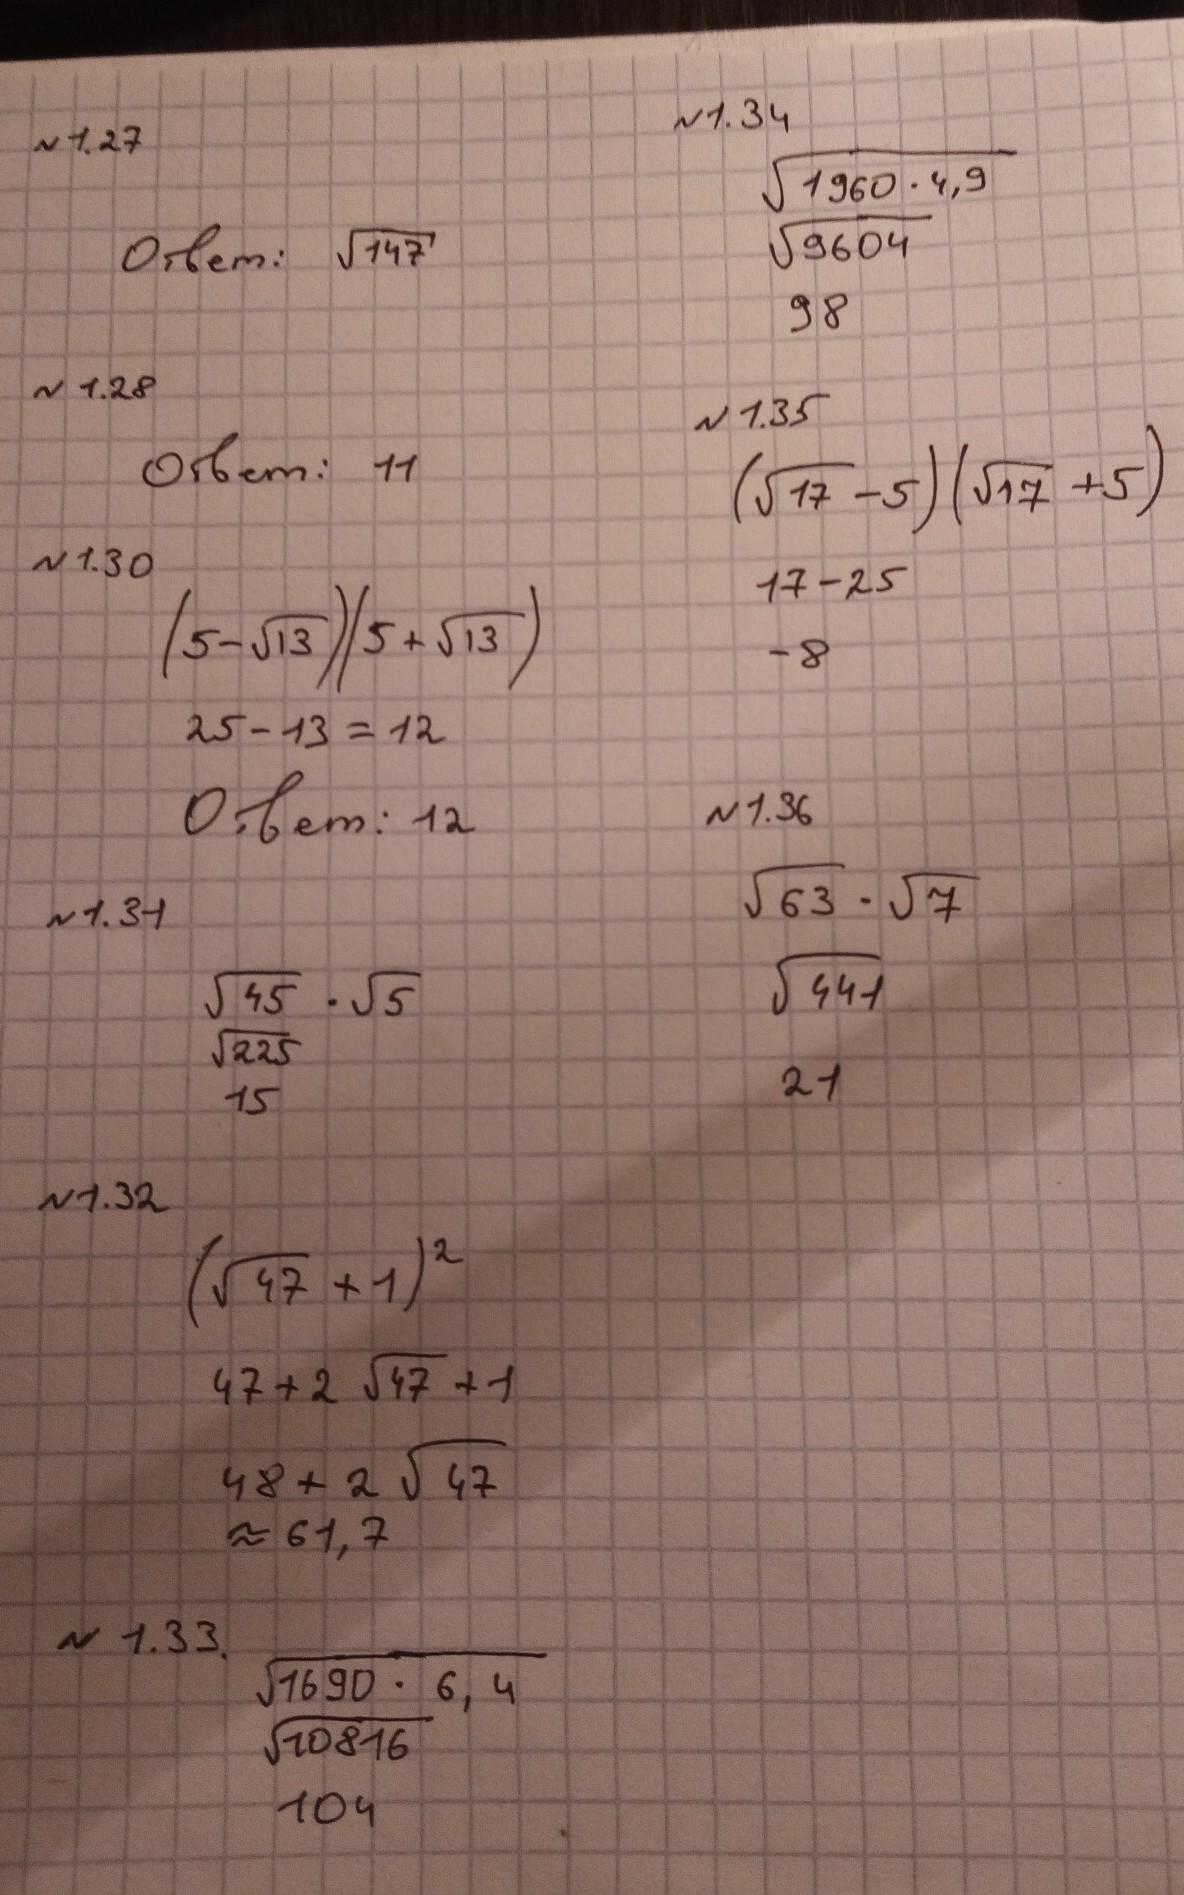 №1.27
Ответ: √147
№ 1.28
Ответ: 11
№1.30
(5-√13)(5+√13)
25-13=12
Ответ: 12
№1.31
√45 · √5
√225
15
№1.32
(√47 + 1)²
47+2 √47 +1
48+2 √47
≈61,7
№ 1.33.
√1690 · 6,4
√10816
104
№1.34
√1960 · 4,9
√9604
98
№1.35
(√17 -5)(√17 +5)
17-25
-8
№1.36
√63 · √7
√441
21